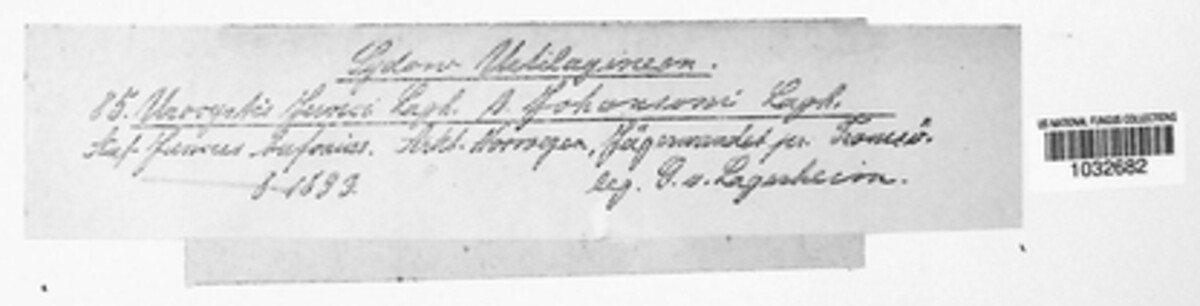 Sydow Ustilagineen.
85. Urocystis Junci Lagh. β. Johansoni Lagh.
Auf Juncus bufonius. Arkt. Norwegen, Jägervandet pr. Tromsö.
8 1893 leg. G. v. Lagerheim.
US NATIONAL FUNGUS COLLECTIONS
1032682